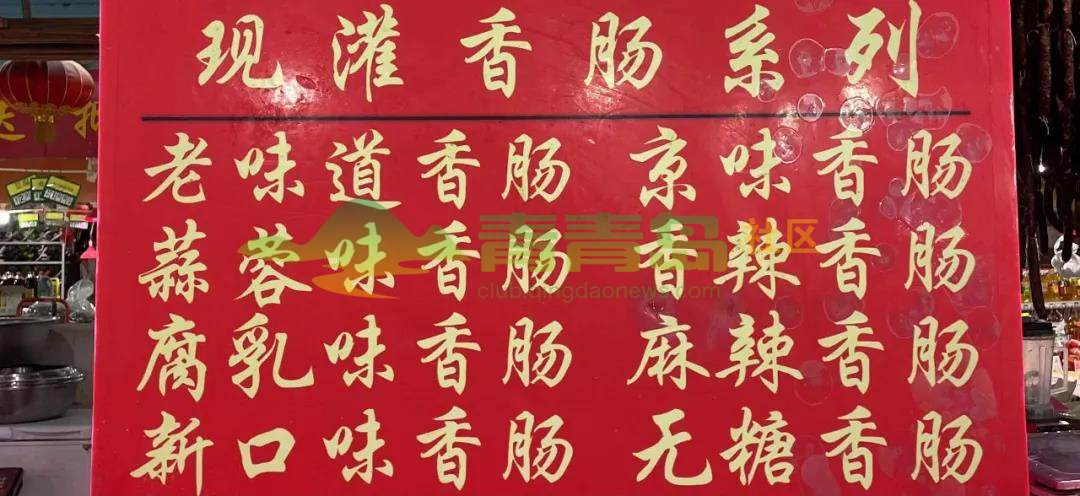 现灌香肠系列
老味道香肠 京味香肠
蒜蓉味香肠 香辣香肠
腐乳味香肠 麻辣香肠
新口味香肠 无糖香肠
青青岛社区
club.qingdaonews.com